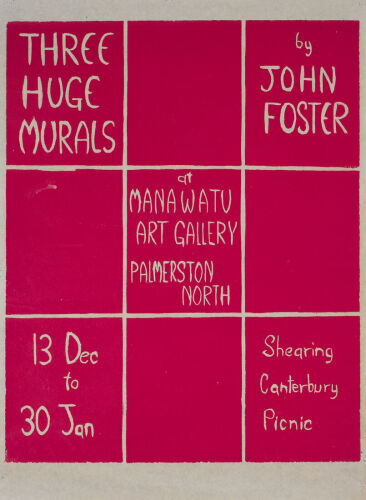 THREE
HUGE
MURALS
by
JOHN
FOSTER
at
MANAWATU
ART GALLERY
PALMERSTON
NORTH
13 Dec
to
30 Jan
Shearing
Canterbury
Picnic